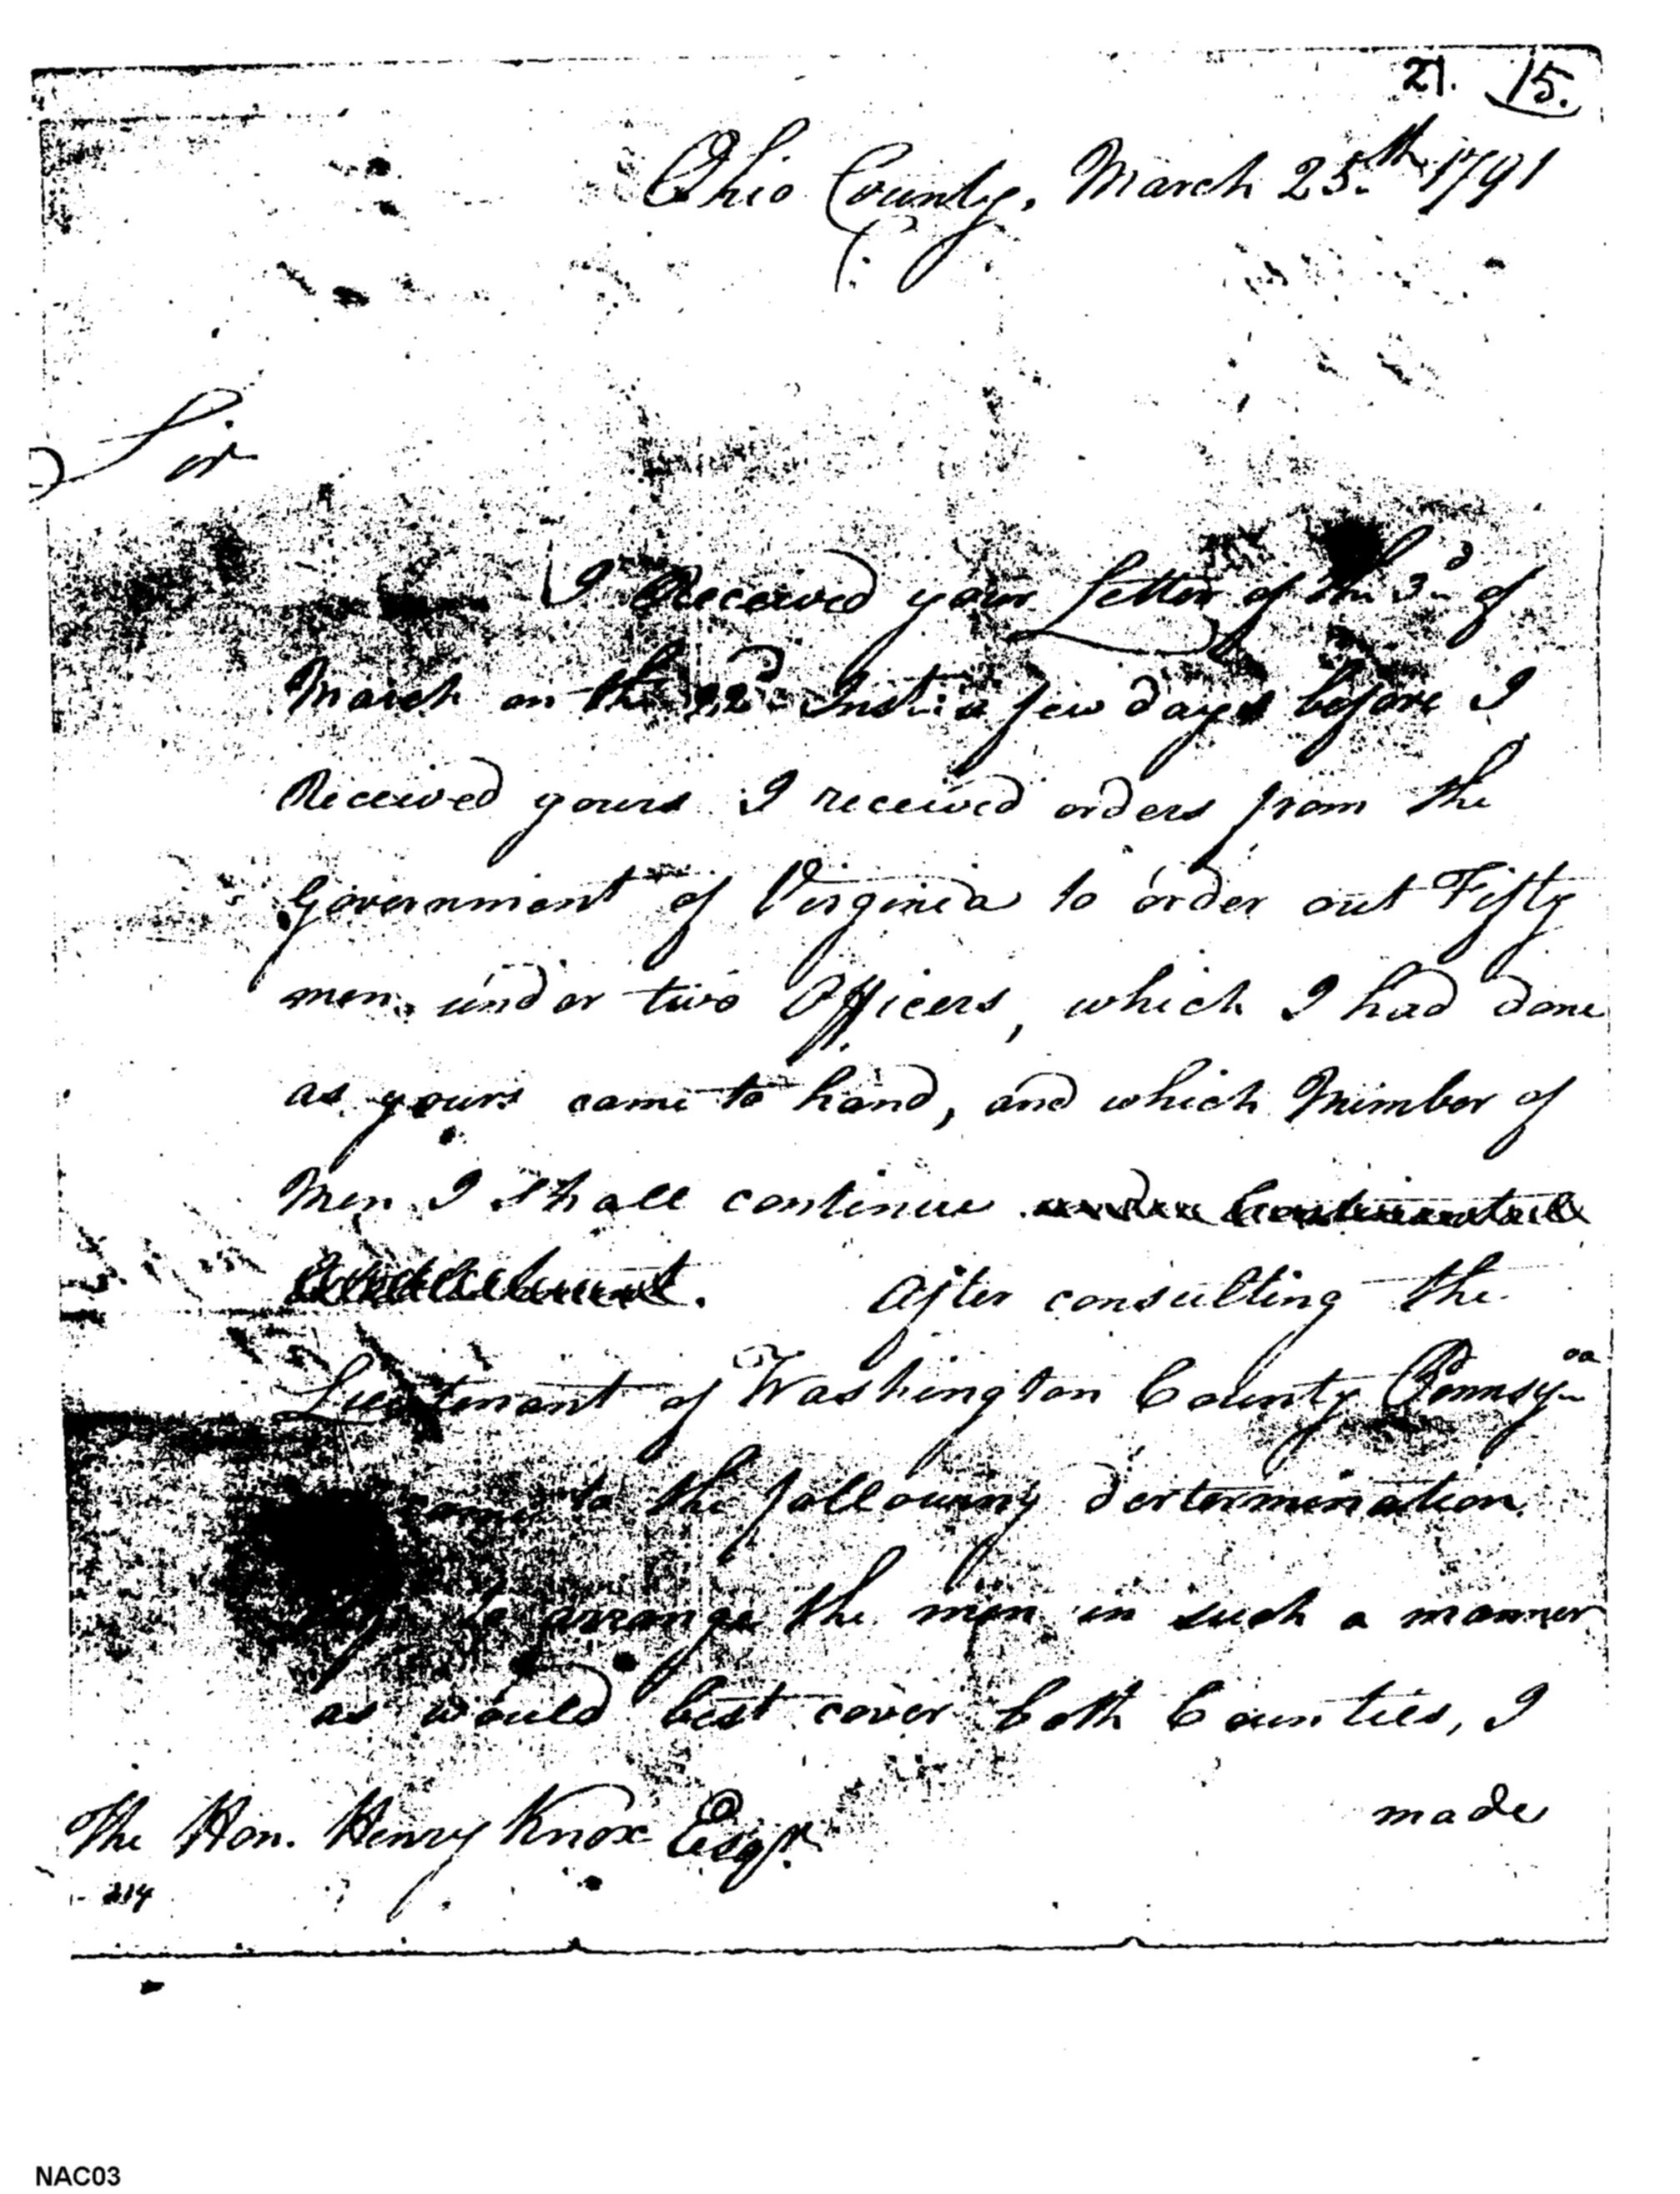 21. 15.
Ohio County, March 25th. 1791
Sir
I Received your Letter of the 3d of
March on the 22d Inst: a few days before I
Received yours I received orders from the
Government of Virginia to order out Fifty
men under two Officers, which I had done
as yours came to hand, and which Number of
Men I shall continue under Continental
. After consulting the
Lieutenant of Washington County Pennsyva
came to the following dertermination
to arrange the men in such a manner
as would best cover both Counties, I
made
The Hon. Henry Knox Esqr.
214
NAC03